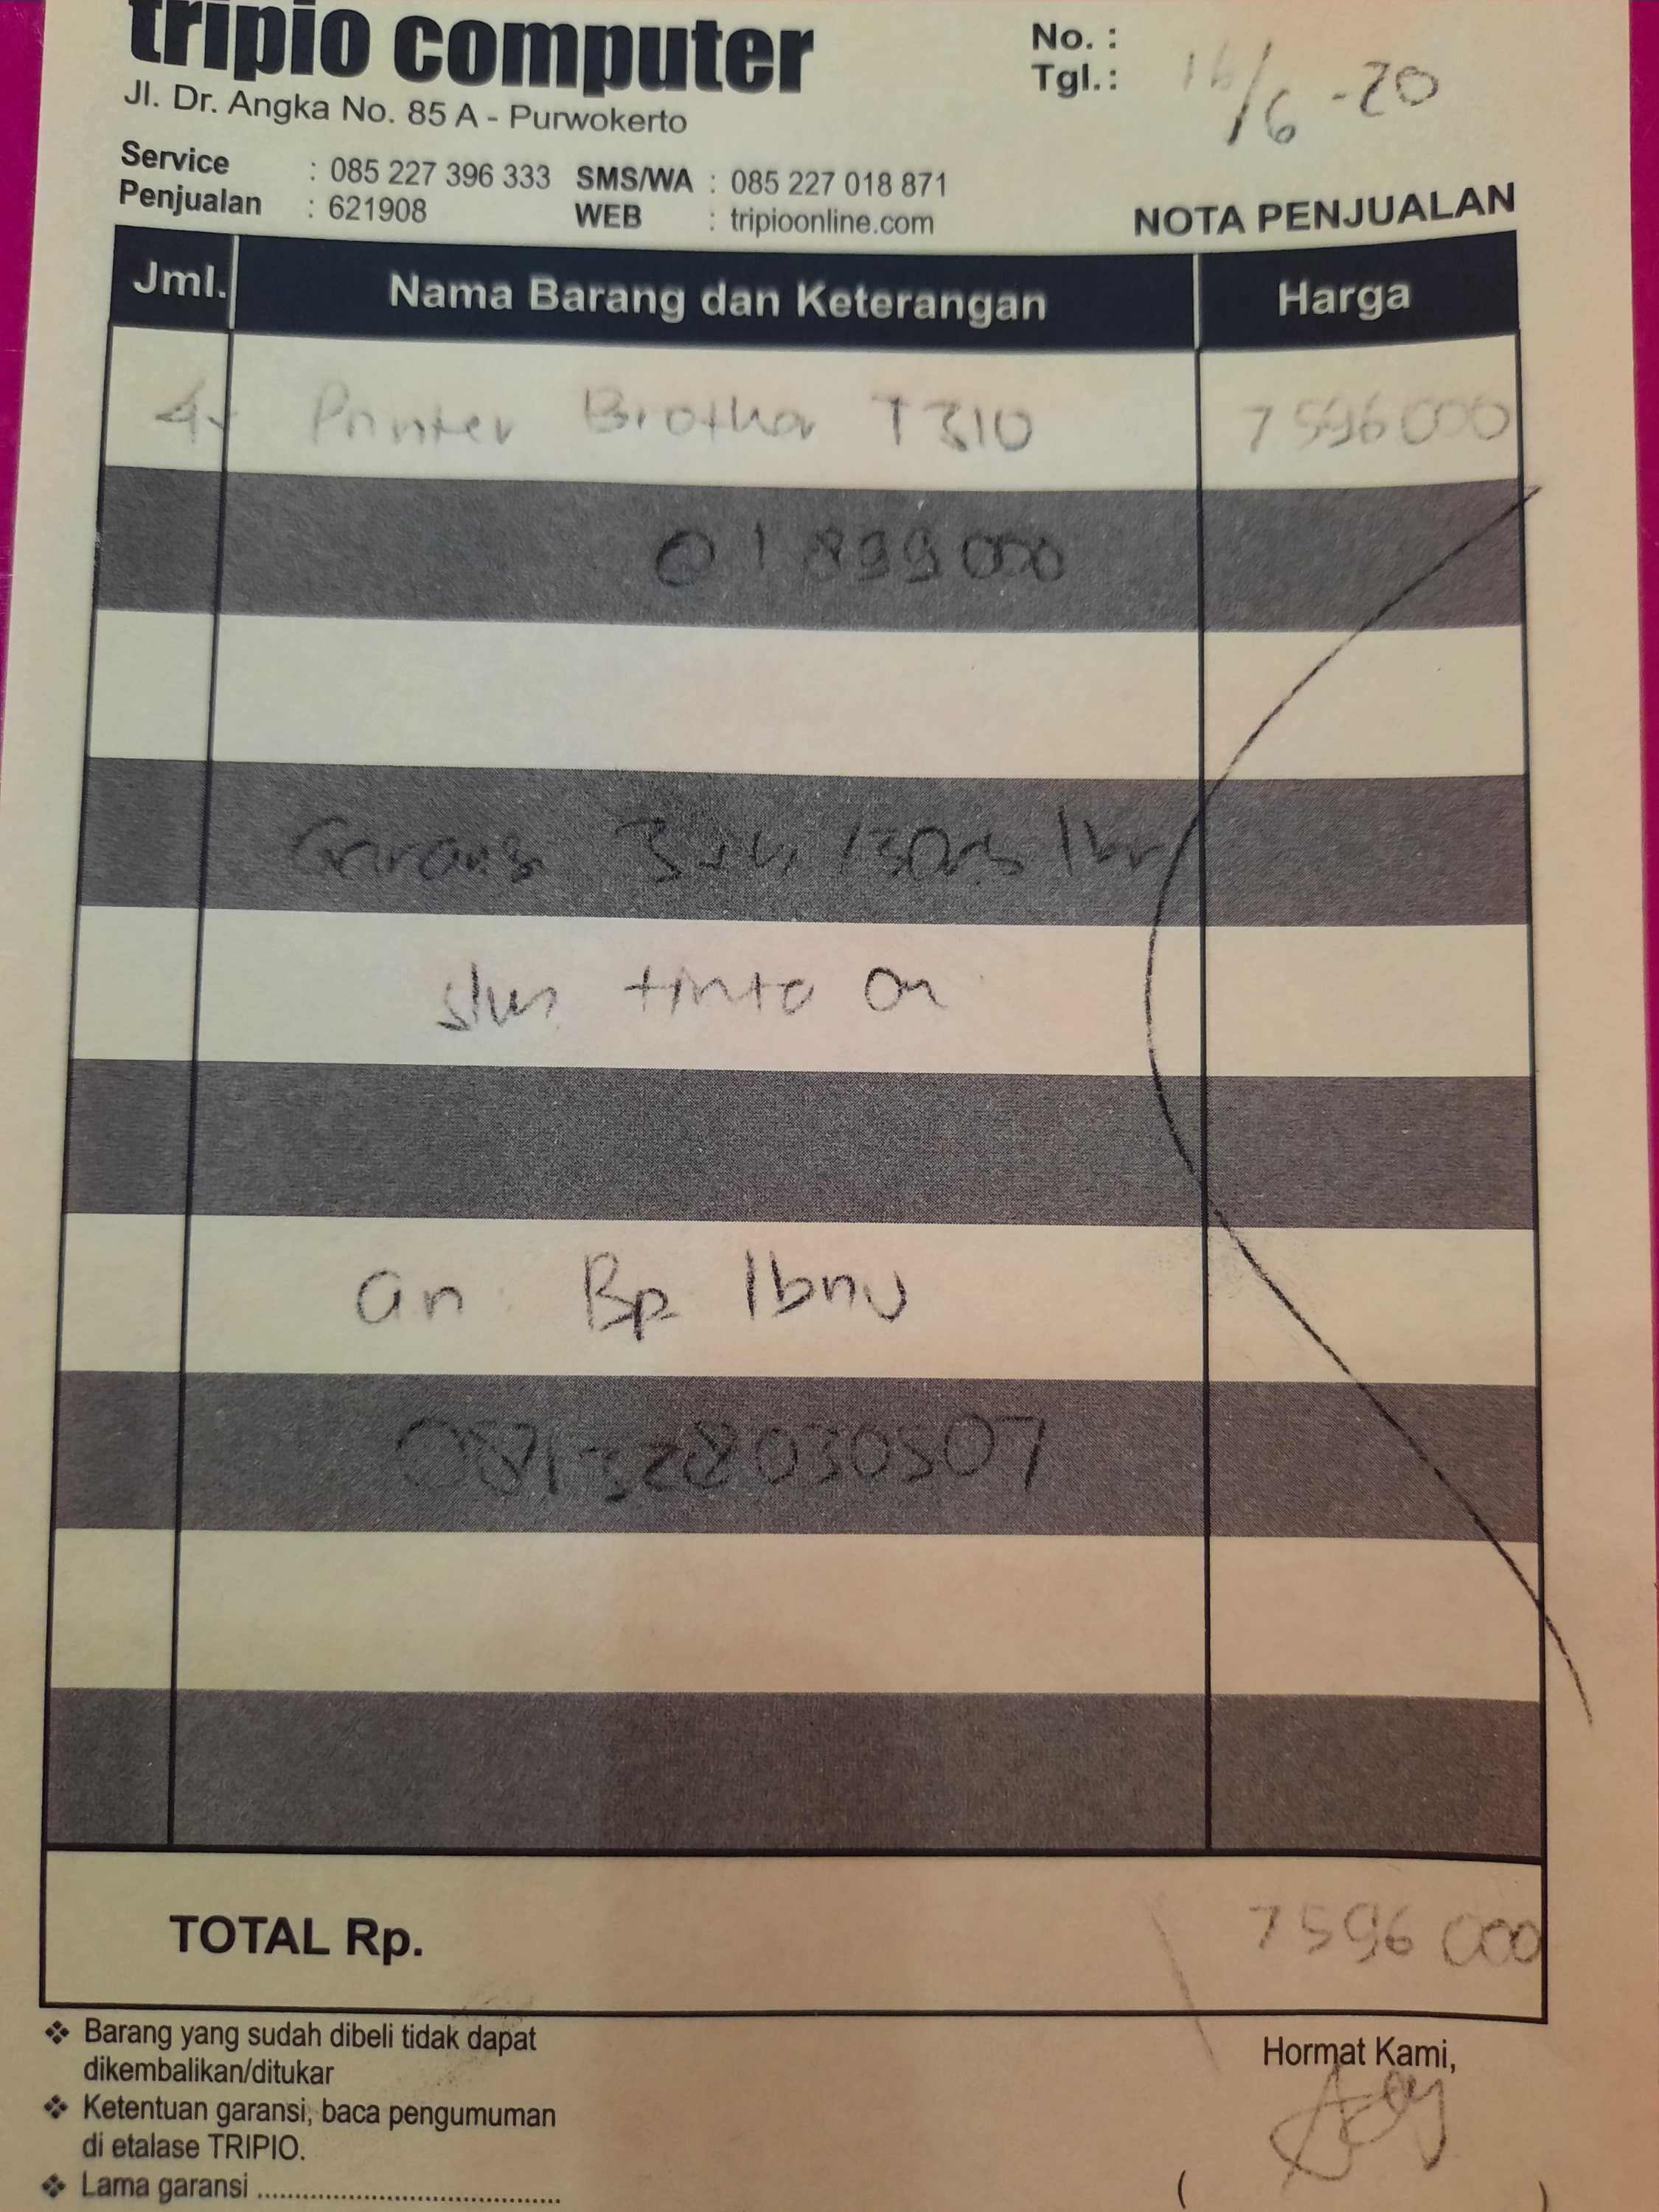 tripio computer
Jl. Dr. Angka No. 85 A - Purwokerto
No. :
Tgl. : 16/6 - 20
Service : 085 227 396 333 SMS/WA : 085 227 018 871
Penjualan : 621908 WEB : tripioonline.com
NOTA PENJUALAN
Jml. Nama Barang dan Keterangan Harga
4x Printer Brother T310 7596000
@ 1899000
Garansi 3
tinta
an Bp Ibnu
081328030507
TOTAL Rp. 7596000
❖ Barang yang sudah dibeli tidak dapat
dikembalikan/ditukar
❖ Ketentuan garansi, baca pengumuman
di etalase TRIPIO.
❖ Lama garansi ........................................
Hormat Kami,
( )